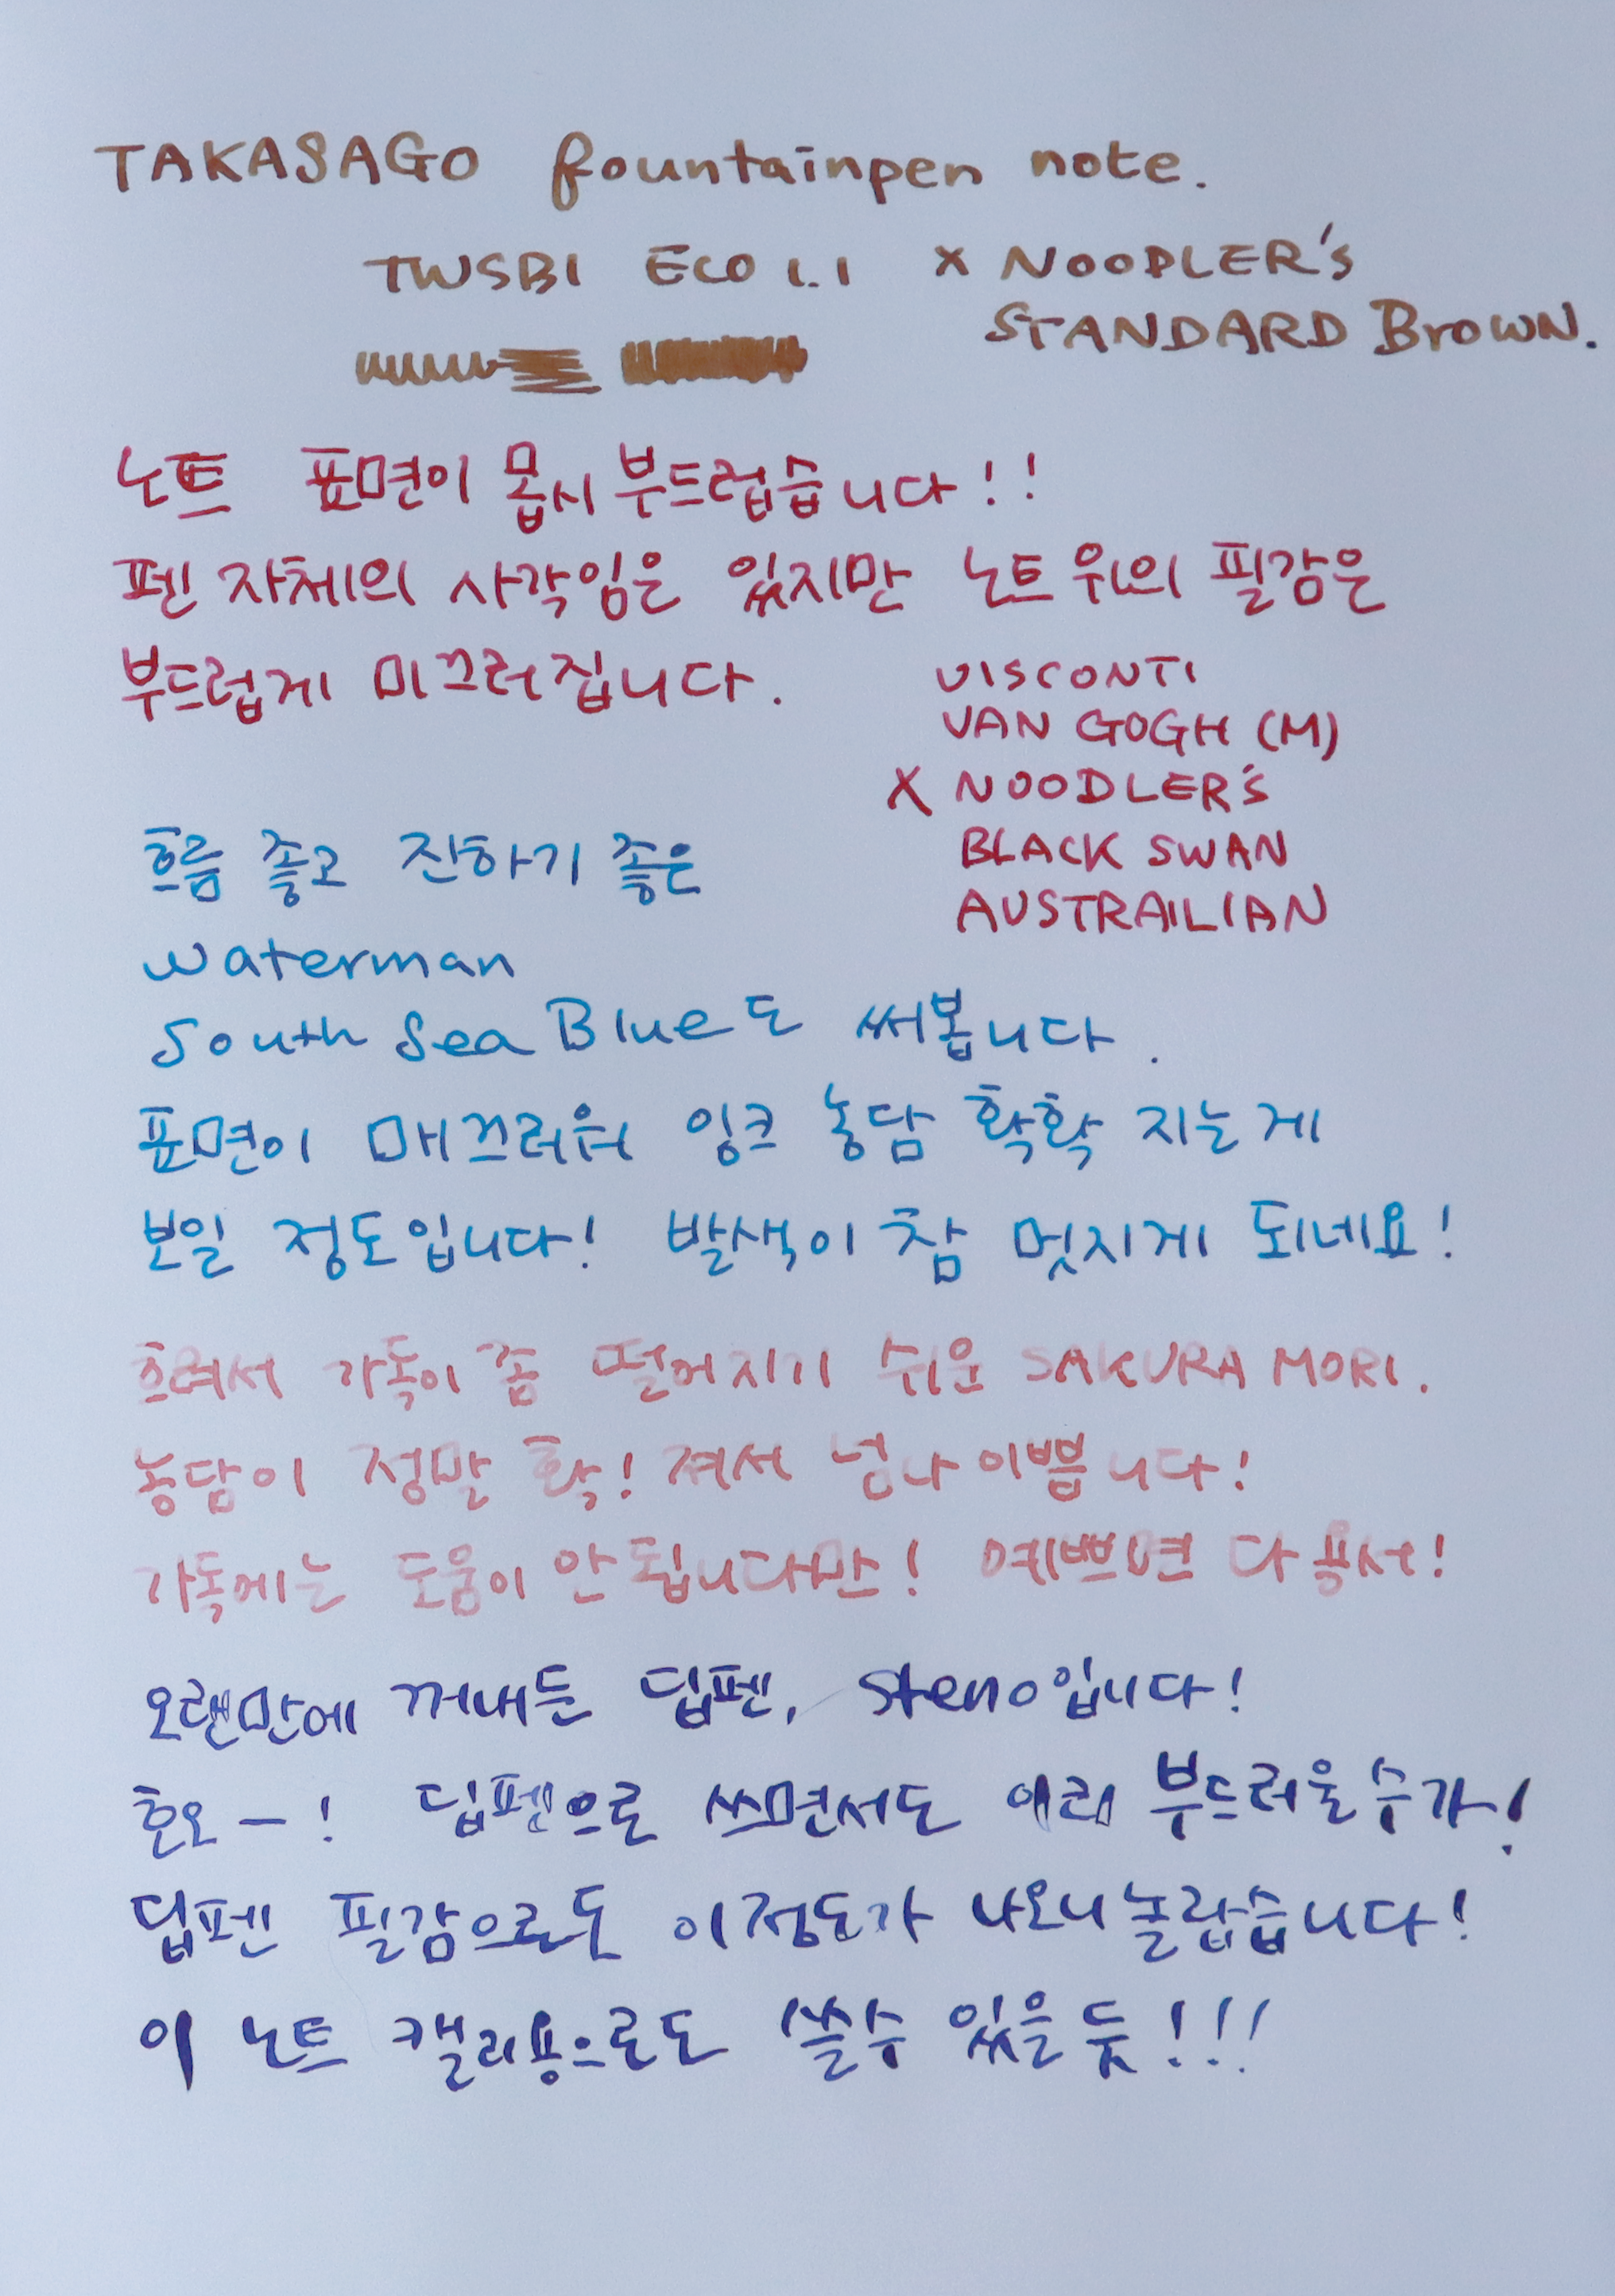 TAKASAGO fountainpen note.
TWSBI ECO 1.1 x NOODLER's
STANDARD BrowN.
노트 표면이 몹시 부드럽습니다!!
펜 자체의 사각임은 있지만 노트 위의 필감은
부드럽게 미끄러집니다.
VISCONTI
VAN GOGH (M)
X NOODLER's
BLACK SWAN
AUSTRAILIAN
흐름 좋고 진하기 좋은
waterman
South Sea Blue도 써봅니다.
표면이 매끄러워 잉크 농담 확확 지는게
보일 정도입니다! 발색이 참 멋지게 되네요!
흐려서 가독이 좀 떨어지기 쉬운 SAKURA MORI.
농담이 정말 확! 져서 넘나 이쁩니다!
가독에는 도움이 안 됩니다만! 예쁘면 다 용서!
오랜만에 꺼내든 딥펜, Steno입니다!
호오-! 딥펜으로 쓰면서도 이리 부드러울 수가!
딥펜 필감으로도 이정도가 나오니 놀랍습니다!
이 노트 캘리용으로도 쓸수 있을 듯!!!